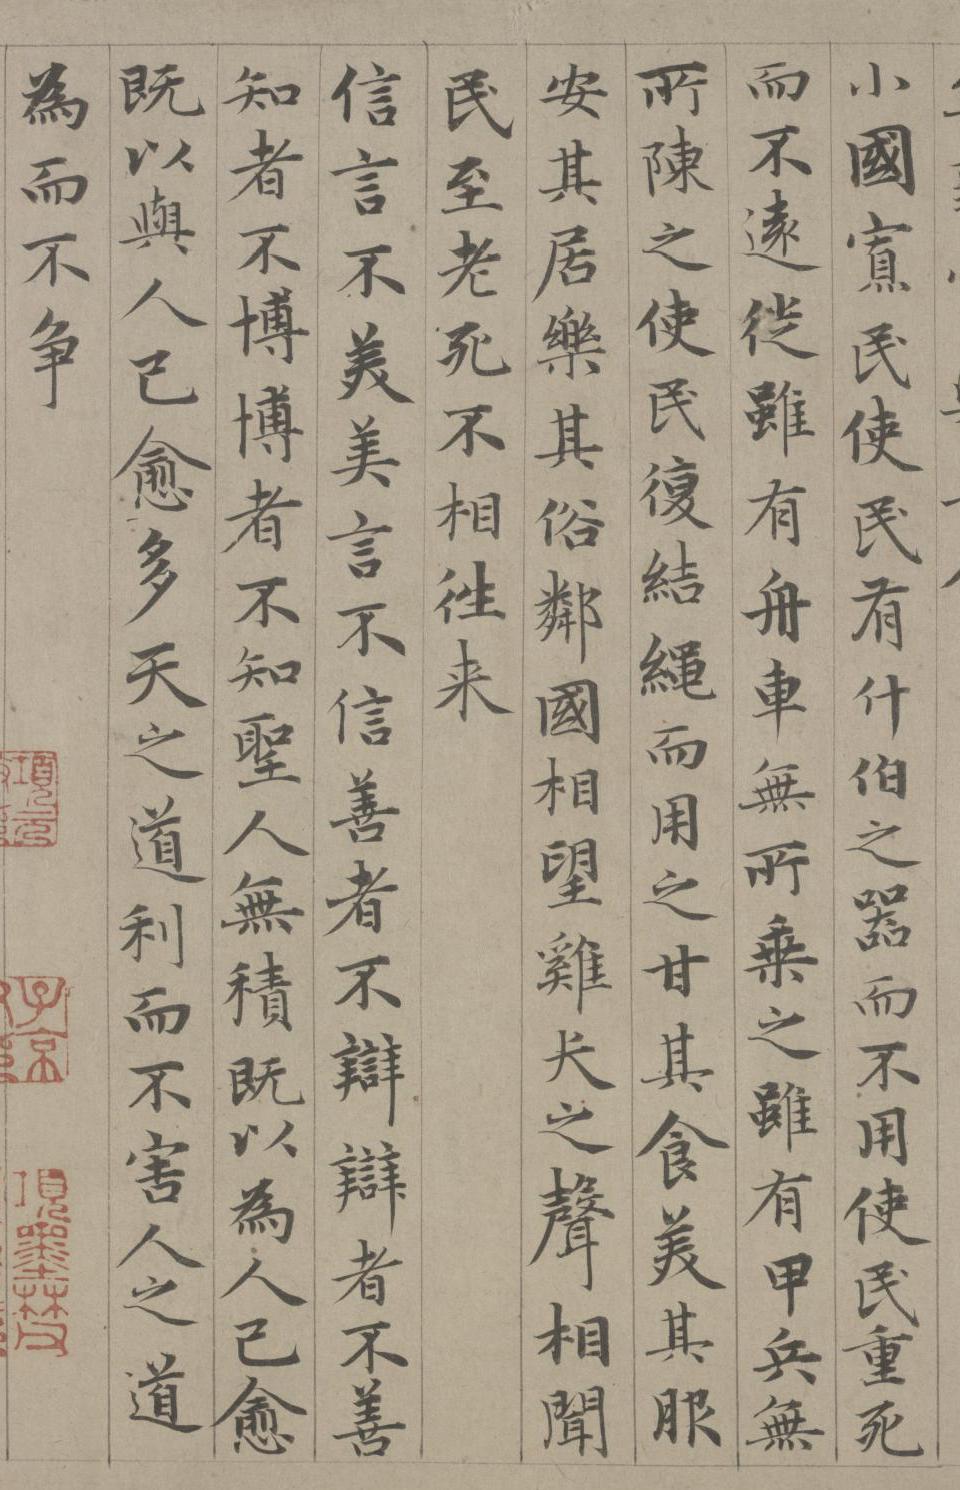 小國寡民使民有什伯之器而不用使民重死
而不遠徙雖有舟車無所乗之雖有甲兵無
所陳之使民復結繩而用之甘其食美其服
安其居樂其俗鄰國相望雞犬之聲相聞
民至老死不相徃来
信言不美美言不信善者不辯辯者不善
知者不博博者不知聖人無積既以為人己愈
既以與人己愈多天之道利而不害人之道
為而不争
項元
子京
項墨林